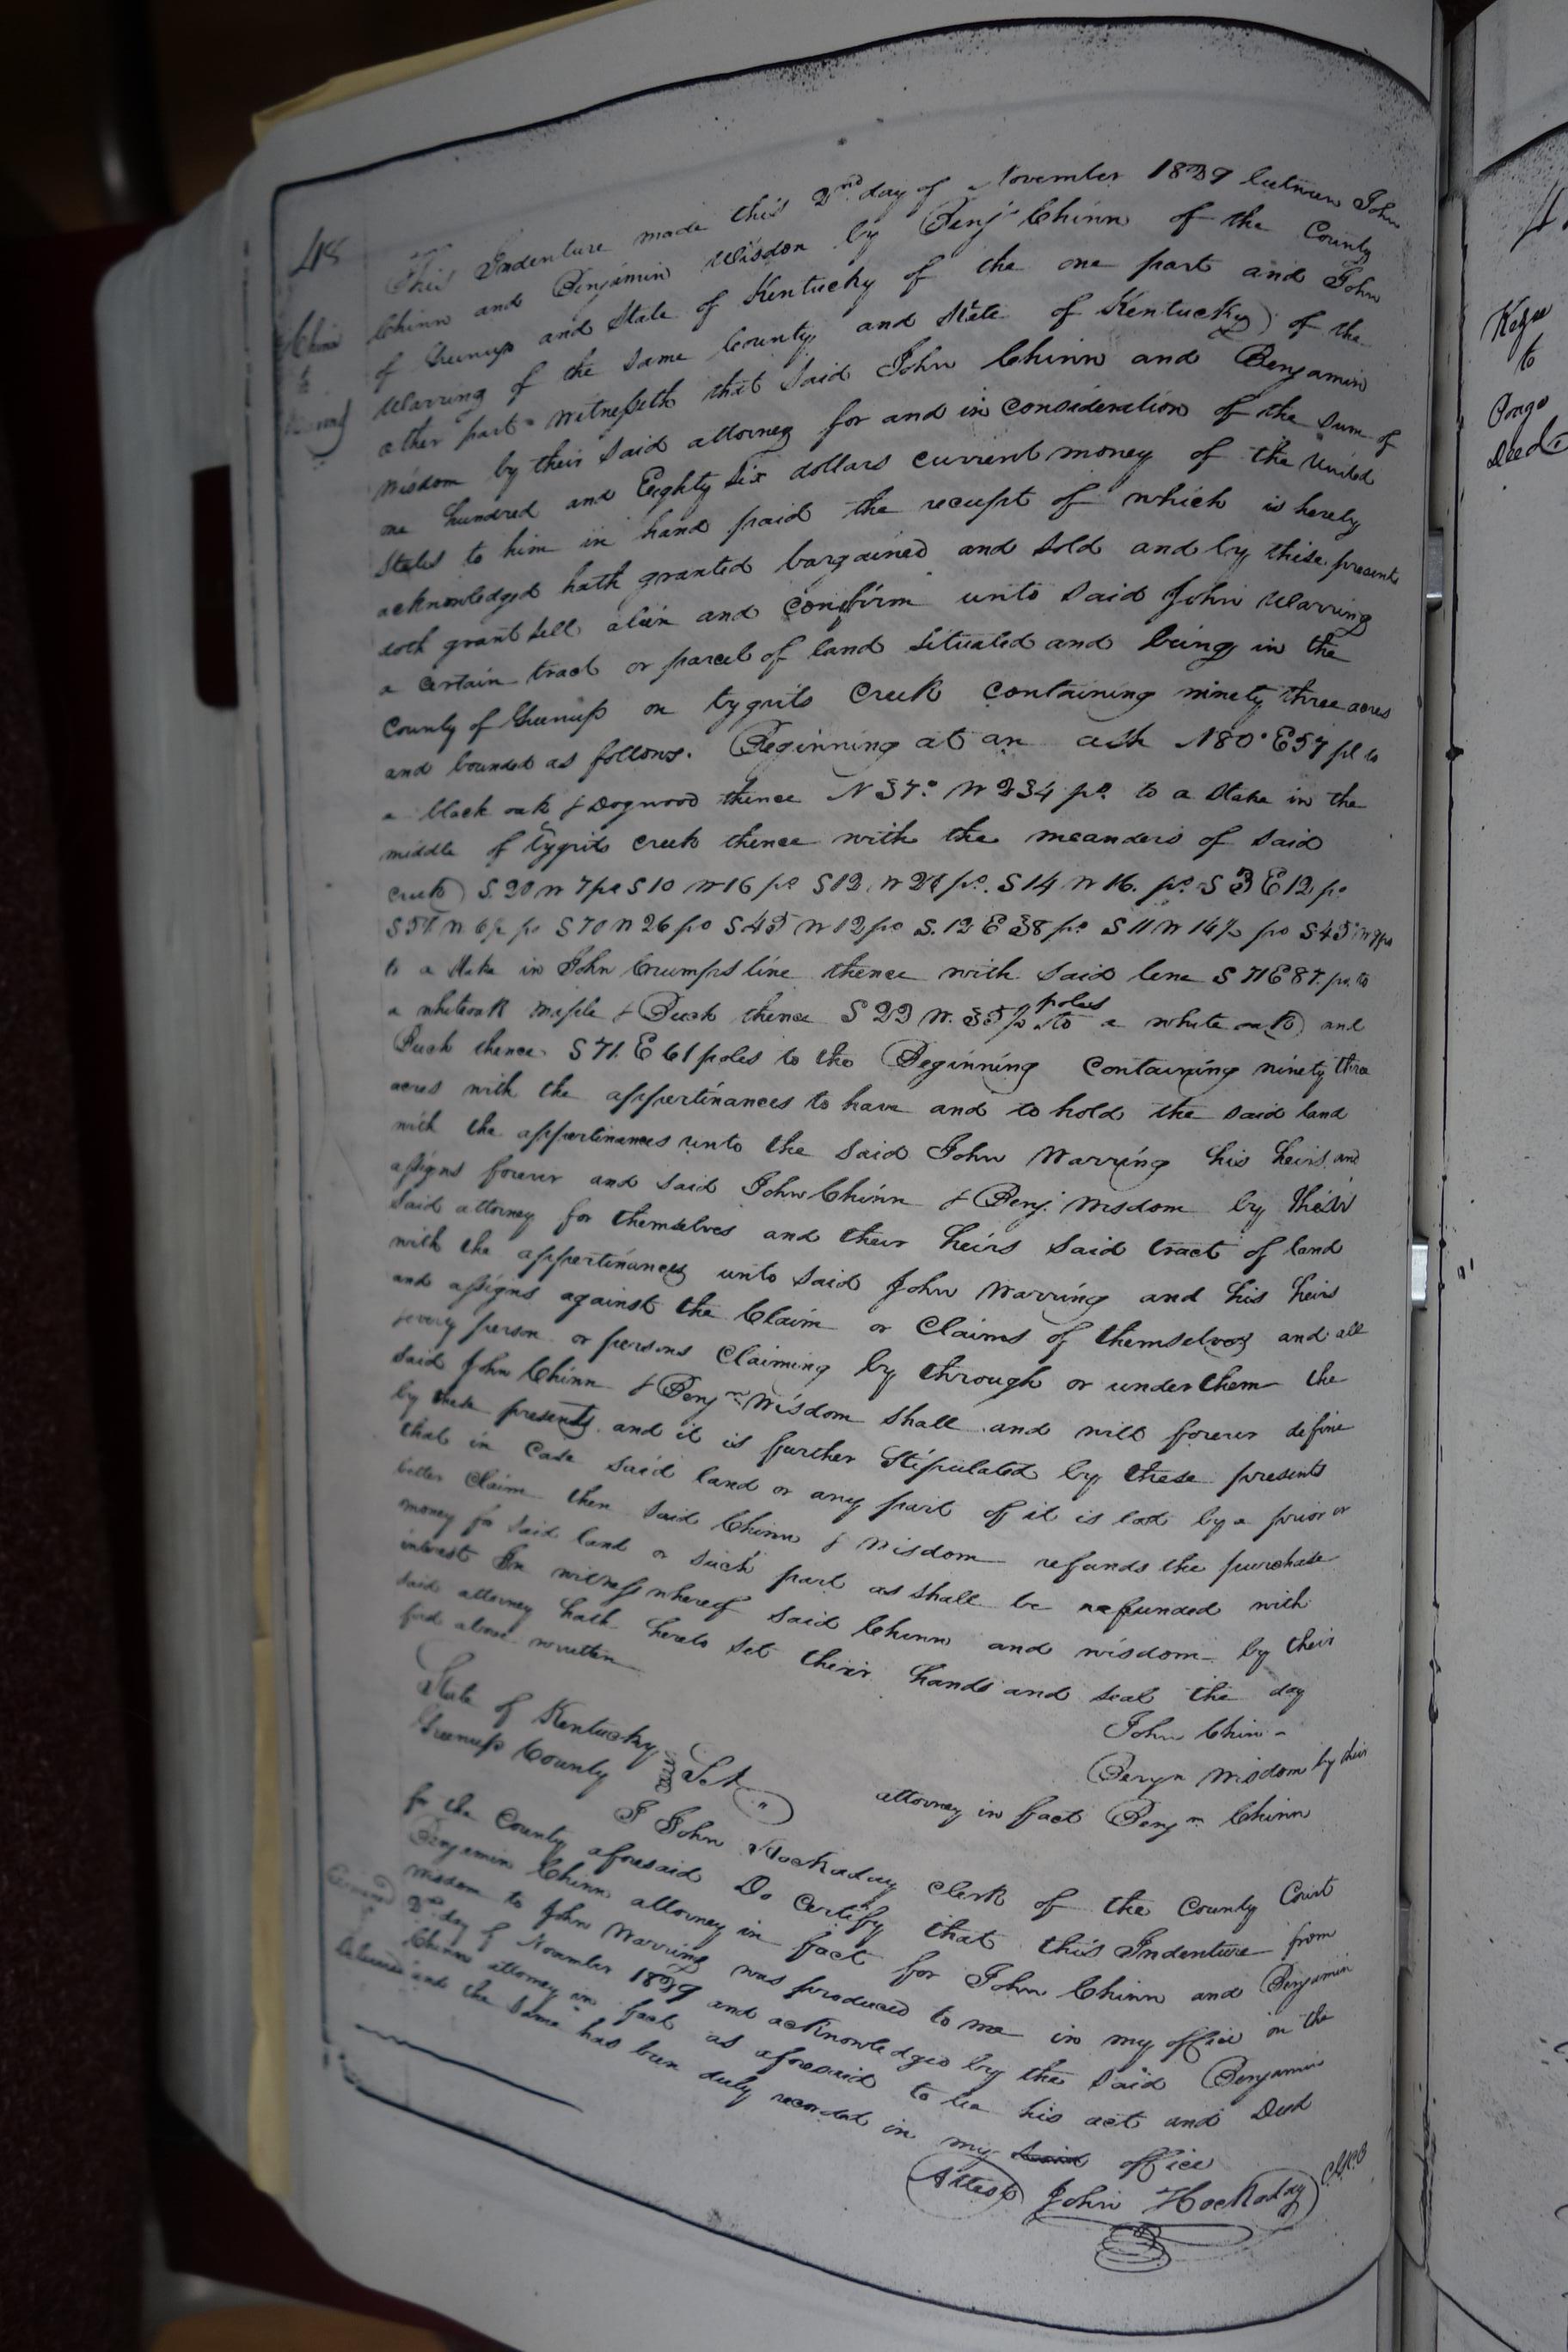 48
This Indenture made this 2nd day of November 1839 between John
Chinn and Benjamin Wisdom by Benj Chinn of the County
of Greenup and State of Kentucky of the one part and John
Warring of the same County and State of Kentucky of the
other part Witnesseth that said John Chinn and Benjamin
Wisdom by their said attorney for and in consideration of the sum of
one hundred and Eighty six dollars current money of the United
States to him in hand paid the receipt of which is hereby
acknowledged hath granted bargained and sold and by these present
doth grant sell alien and confirm unto said John Warring
a certain tract or parcel of land situated and being in the
County of Greenup on tygrits creek containing ninety three acres
and bounded as follows. Beginning at an ash N80°E57 pl to
a black oak & Dogwood thence N 37° W 234 po to a stake in the
middle of Tygrits creek thence with the meanders of said
creek S. 20 W 7 po S10 W16 po S12 W 28 po. S14 W 16. po S 3 E 12 po
S 70 W 26 po S 45 W 12 po S. 12 E 38 po S 11 W 14½ po S 45 W
to a stake in John Crumps line thence with said line S 71 E 87. po to
a whiteoak maple & Buch thence S 22 W. 35½ poles to a white oak and
Buch thence S 71. E 61 poles to the Beginning containing ninety three
acres with the appertinances to have and to hold the said land
with the appertinances unto the said John Warring his heirs and
assigns forever and said John Chinn & Benj. Wisdom by their
said attorney for themselves and their heirs said tract of land
with the appertinances unto said John Warring and his heirs
and assigns against the Claim or Claims of themselves and all
& every person or persons claiming by through or under them the
said John Chinn & Benjn Wisdom shall and will forever define
by these presents and it is further stipulated by these presents
that in case said land or any part of it is lost by a prior or
better claim then said Chinn & Wisdom refunds the purchase
money for said land or such part as shall be refunded with
interest In witness whereof said Chinn and Wisdom by their
said attorney hath hereto set their hands and seal the day
first above written
John Chin
Benjn Wisdom by their
attorney in fact Benjn Chinn
State of Kentucky
Greenup County Sct
I John Hockaday clerk of the County Court
for the County aforesaid Do certify that this Indenture from
Benjamin Chinn attorney in fact for John Chinn and Benjamin
Wisdom to John Warring was produced to me in my office on the
2nd day of November 1839 and acknowledged by the said Benjamin
Chinn attorney in fact as aforesaid to be his act and Deed
and the same has been duly recorded in my said office
Attest John Hockaday
Chinn
to
Warring
Kezee
to
Deed